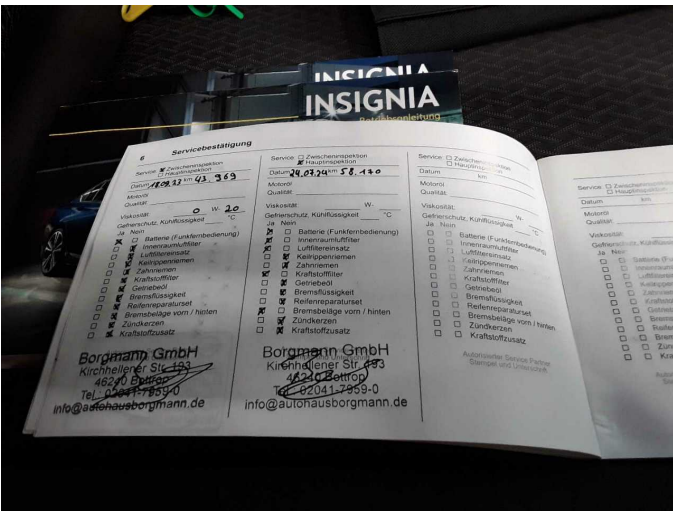 INSIGNIA
INSIGNIA
Betriebsanleitung
6 Servicebestätigung
Service: Zwischeninspektion
Hauptinspektion
Datum 18.09.23 km 43.969
Motoröl
Qualität
Viskosität 0 W- 20
Gefrierschutz, Kühlflüssigkeit °C
Ja Nein
Batterie (Funkfernbedienung)
Innenraumluftfilter
Luftfiltereinsatz
Keilrippenriemen
Zahnriemen
Kraftstofffilter
Getriebeöl
Bremsflüssigkeit
Reifenreparaturset
Bremsbeläge vorn / hinten
Zündkerzen
Kraftstoffzusatz
Borgmann GmbH
Kirchhellener Str. 193
46240 Bottrop
Tel.: 02041-7959-0
info@autohausborgmann.de
Service: Zwischeninspektion
Hauptinspektion
Datum 24.07.24 km 58.170
Motoröl
Qualität
Viskosität: W-
Gefrierschutz, Kühlflüssigkeit °C
Ja Nein
Batterie (Funkfernbedienung)
Innenraumluftfilter
Luftfiltereinsatz
Keilrippenriemen
Zahnriemen
Kraftstofffilter
Getriebeöl
Bremsflüssigkeit
Reifenreparaturset
Bremsbeläge vorn / hinten
Zündkerzen
Kraftstoffzusatz
Borgmann GmbH
Kirchhellener Str. 193
46240 Bottrop
Tel.: 02041-7959-0
info@autohausborgmann.de
Service: Zwischeninspektion
Hauptinspektion
Datum km
Motoröl
Qualität
Viskosität: W-
Gefrierschutz, Kühlflüssigkeit °C
Ja Nein
Batterie (Funkfernbedienung)
Innenraumluftfilter
Luftfiltereinsatz
Keilrippenriemen
Zahnriemen
Kraftstofffilter
Getriebeöl
Bremsflüssigkeit
Reifenreparaturset
Bremsbeläge vorn / hinten
Zündkerzen
Kraftstoffzusatz
Autorisierter Service Partner
Stempel und Unterschrift
Service:
Datum
Motoröl
Qualität
Viskosität:
Ja Nein